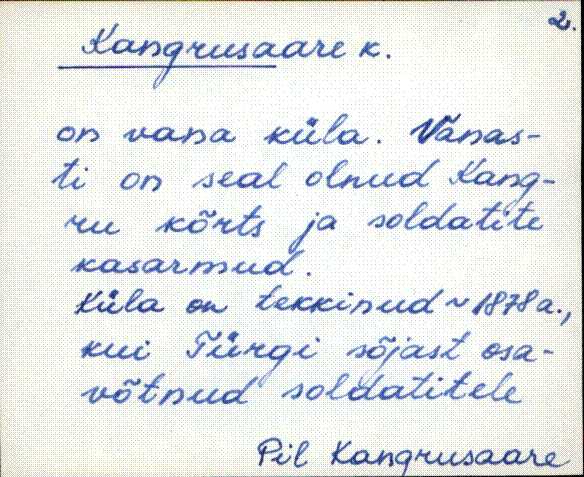 2.
Kangrusaare k.
on vana küla. Vanas-
ti on seal olnud Kang-
ru kõrts ja soldatite
kasarmud.
Küla on tekkinud ~ 1878 a.,
kui Türgi sõjast osa-
võtnud soldatitele
Pil Kangrusaare